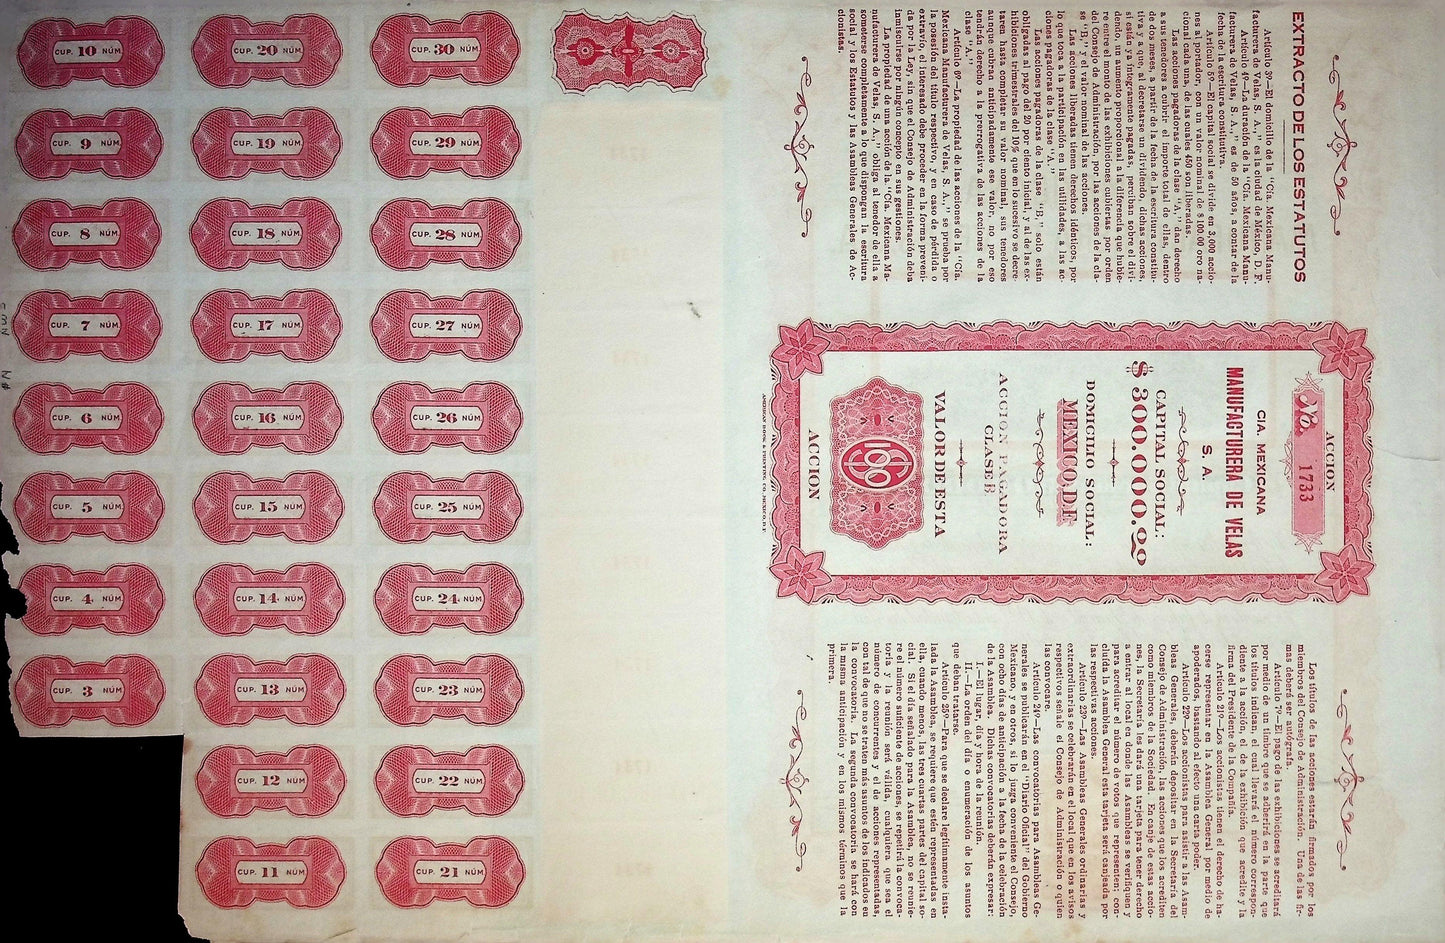 CUP. 10 NÚM.
CUP. 20 NÚM.
CUP. 30 NÚM.
CUP. 9 NÚM.
CUP. 19 NÚM.
CUP. 29 NÚM.
CUP. 8 NÚM.
CUP. 18 NÚM.
CUP. 28 NÚM.
CUP. 7 NÚM.
CUP. 17 NÚM.
CUP. 27 NÚM.
CUP. 6 NÚM.
CUP. 16 NÚM.
CUP. 26 NÚM.
CUP. 5 NÚM.
CUP. 15 NÚM.
CUP. 25 NÚM.
CUP. 4 NÚM.
CUP. 14 NÚM.
CUP. 24 NÚM.
CUP. 3 NÚM.
CUP. 13 NÚM.
CUP. 23 NÚM.
CUP. 12 NÚM.
CUP. 22 NÚM.
CUP. 11 NÚM.
CUP. 21 NÚM.
EXTRACTO DE LOS ESTATUTOS
Artículo 3º—El domicilio de la "Cía. Mexicana Manu-
facturera de Velas, S. A.," es la ciudad de México, D. F.
Artículo 4º—La duración de la "Cía. Mexicana Manu-
facturera de Velas, S. A.," es de 50 años, a contar de la
fecha de la escritura constitutiva.
Artículo 5º—El capital social se divide en 3,000 accio-
nes al portador, con un valor nominal de $100.00 oro na-
cional cada una, de las cuales 450 son liberadas.
Las acciones pagadoras de la clase "A," dan derecho
a sus tenedores a cubrir el importe total de ellas, dentro
de dos meses, a partir de la fecha de la escritura constitu-
tiva y a que, al decretarse un dividendo, dichas acciones,
si están ya íntegramente pagadas, perciban sobre el divi-
dendo, un aumento proporcional a la diferencia que hubie-
re entre el monto de las exhibiciones cubiertas por orden
del Consejo de Administración, por las acciones de la cla-
se "B," y el valor nominal de las acciones.
Las acciones liberadas tienen derechos idénticos, por
lo que toca a la participación en las utilidades, a las ac-
ciones pagadoras de la clase "A."
Las acciones pagadoras de la clase "B," solo están
obligadas al pago del 20 por ciento inicial y al de las ex-
hibiciones trimestrales del 10% que en lo sucesivo se decre-
taren hasta completar su valor nominal, sus tenedores
aunque cubran anticipadamente ese valor, no por eso
tendrán derecho a la prerrogativa de las acciones de la
clase "A."
Artículo 6º—La propiedad de las acciones de la "Cía.
Mexicana Manufacturera de Velas, S. A.," se prueba por
la posesión del título respectivo, y en caso de pérdida o
extravío, el interesado debe proceder en la forma preveni-
da por la Ley, sin que el Consejo de Administración deba
inmiscuirse por ningún concepto en sus gestiones.
La propiedad de una acción de la "Cía. Mexicana Ma-
nufacturera de Velas, S. A.," obliga al tenedor de ella a
someterse completamente a lo que dispongan la escritura
social y los Estatutos y las Asambleas Generales de Ac-
cionistas.
ACCION
No. 1733
CIA. MEXICANA
MANUFACTURERA DE VELAS
S. A.
CAPITAL SOCIAL:
$300.000.00
DOMICILIO SOCIAL:
MEXICO, D.F.
ACCION PAGADORA
CLASE B
VALOR DE ESTA
$100
ACCION
AMERICAN BOOK & PRINTING CO., MEXICO, D.F.
Los títulos de las acciones estarán firmados por los
miembros del Consejo de Administración. Una de las fir-
mas deberá ser autógrafa.
Artículo 7º—El pago de las exhibiciones se acreditará
por medio de un timbre que se adherirá en la parte que
los títulos indican, el cual llevará el número correspon-
diente a la acción, el de la exhibición que acredite y la
firma del Presidente de la Compañía.
Artículo 21º—Los accionistas tienen el derecho de ha-
cerse representar en la Asamblea General por medio de
apoderados, bastando al efecto una carta poder.
Artículo 22º—Los accionistas para asistir a las Asam-
bleas Generales, deberán depositar en la Secretaría del
Consejo de Administración, las acciones que los acrediten
como miembros de la Sociedad. En canje de estas accio-
nes, la Secretaría les dará una tarjeta para tener derecho
a entrar al local en donde las Asambleas se verifiquen y
para acreditar el número de votos que representen; con-
cluida la Asamblea General esta tarjeta será canjeada por
las respectivas acciones.
Artículo 23º—Las Asambleas Generales ordinarias y
extraordinarias se celebrarán en el local que en los avisos
respectivos señale el Consejo de Administración o quien
las convocare.
Artículo 24º—Las convocatorias para Asambleas Ge-
nerales se publicarán en el "Diario Oficial" del Gobierno
Mexicano, y en otros, si lo juzga conveniente el Consejo,
con ocho días de anticipación a la fecha de la celebración
de la Asamblea. Dichas convocatorias deberán expresar:
I.—El lugar, día y hora de la reunión.
II.—La orden del día o enumeración de los asuntos
que deban tratarse.
Artículo 25º—Para que se declare legítimamente insta-
lada la Asamblea, se requiere que estén representadas en
ella, cuando menos, las tres cuartas partes del capital so-
cial. Si el día señalado para la Asamblea, no se reunie-
re el número suficiente de acciones, se repetirá la convoca-
toria y la reunión será válida, cualquiera que sea el
número de concurrentes y el de acciones representadas,
con tal de que no se traten más asuntos de los indicados en
la convocatoria. La segunda convocatoria se hará con
la misma anticipación y en los mismos términos que la
primera.